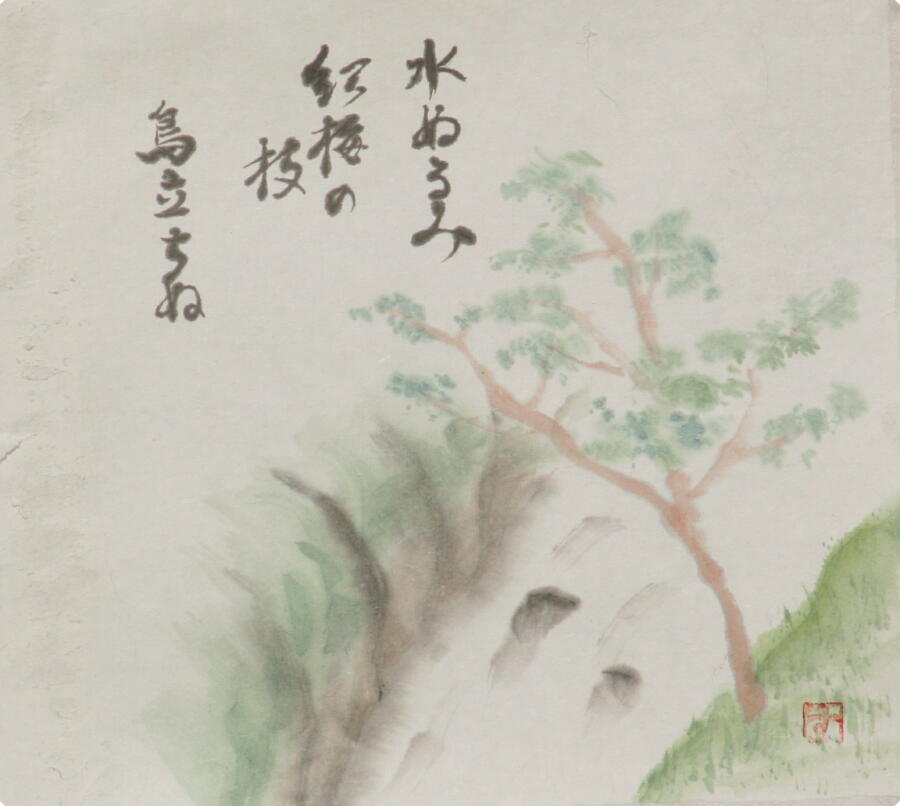 水ぬるみ
紅梅の
枝
鳥立ちぬ